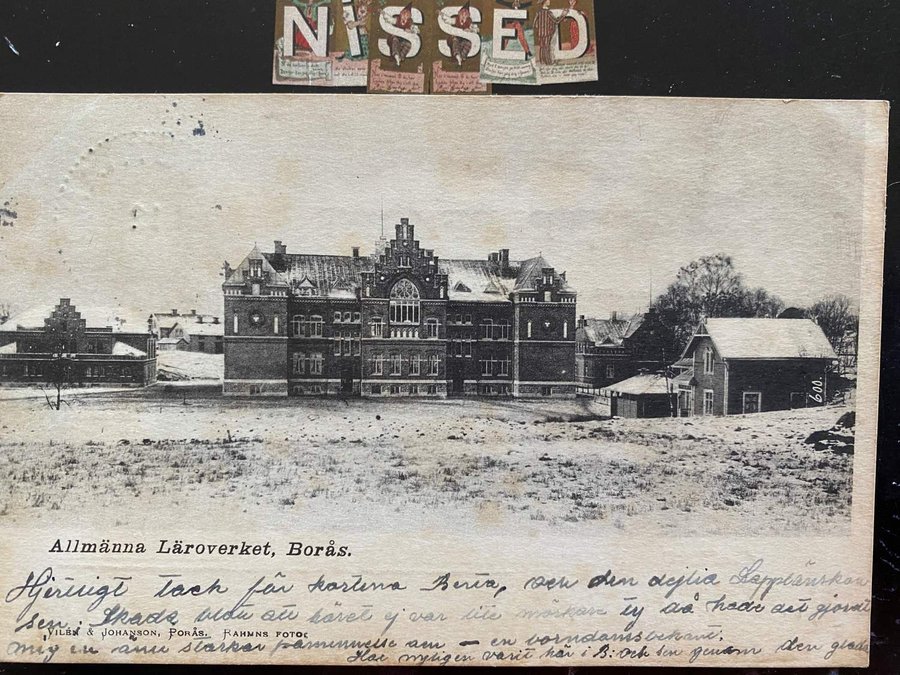 NiSSED
600.
Allmänna Läroverket, Borås.
Hjertligt tack för korten Berta, och den dejliga
sen. Skada blott att håret ej var lite mörkare ty då hade det gjordt
VILÉN & JOHANSON, BORÅS. RAHMNS FOTO
mig en ännu starkare påminnelse om — en barndomsbekant.
Har nyligen varit här i B: och sen genom den glada